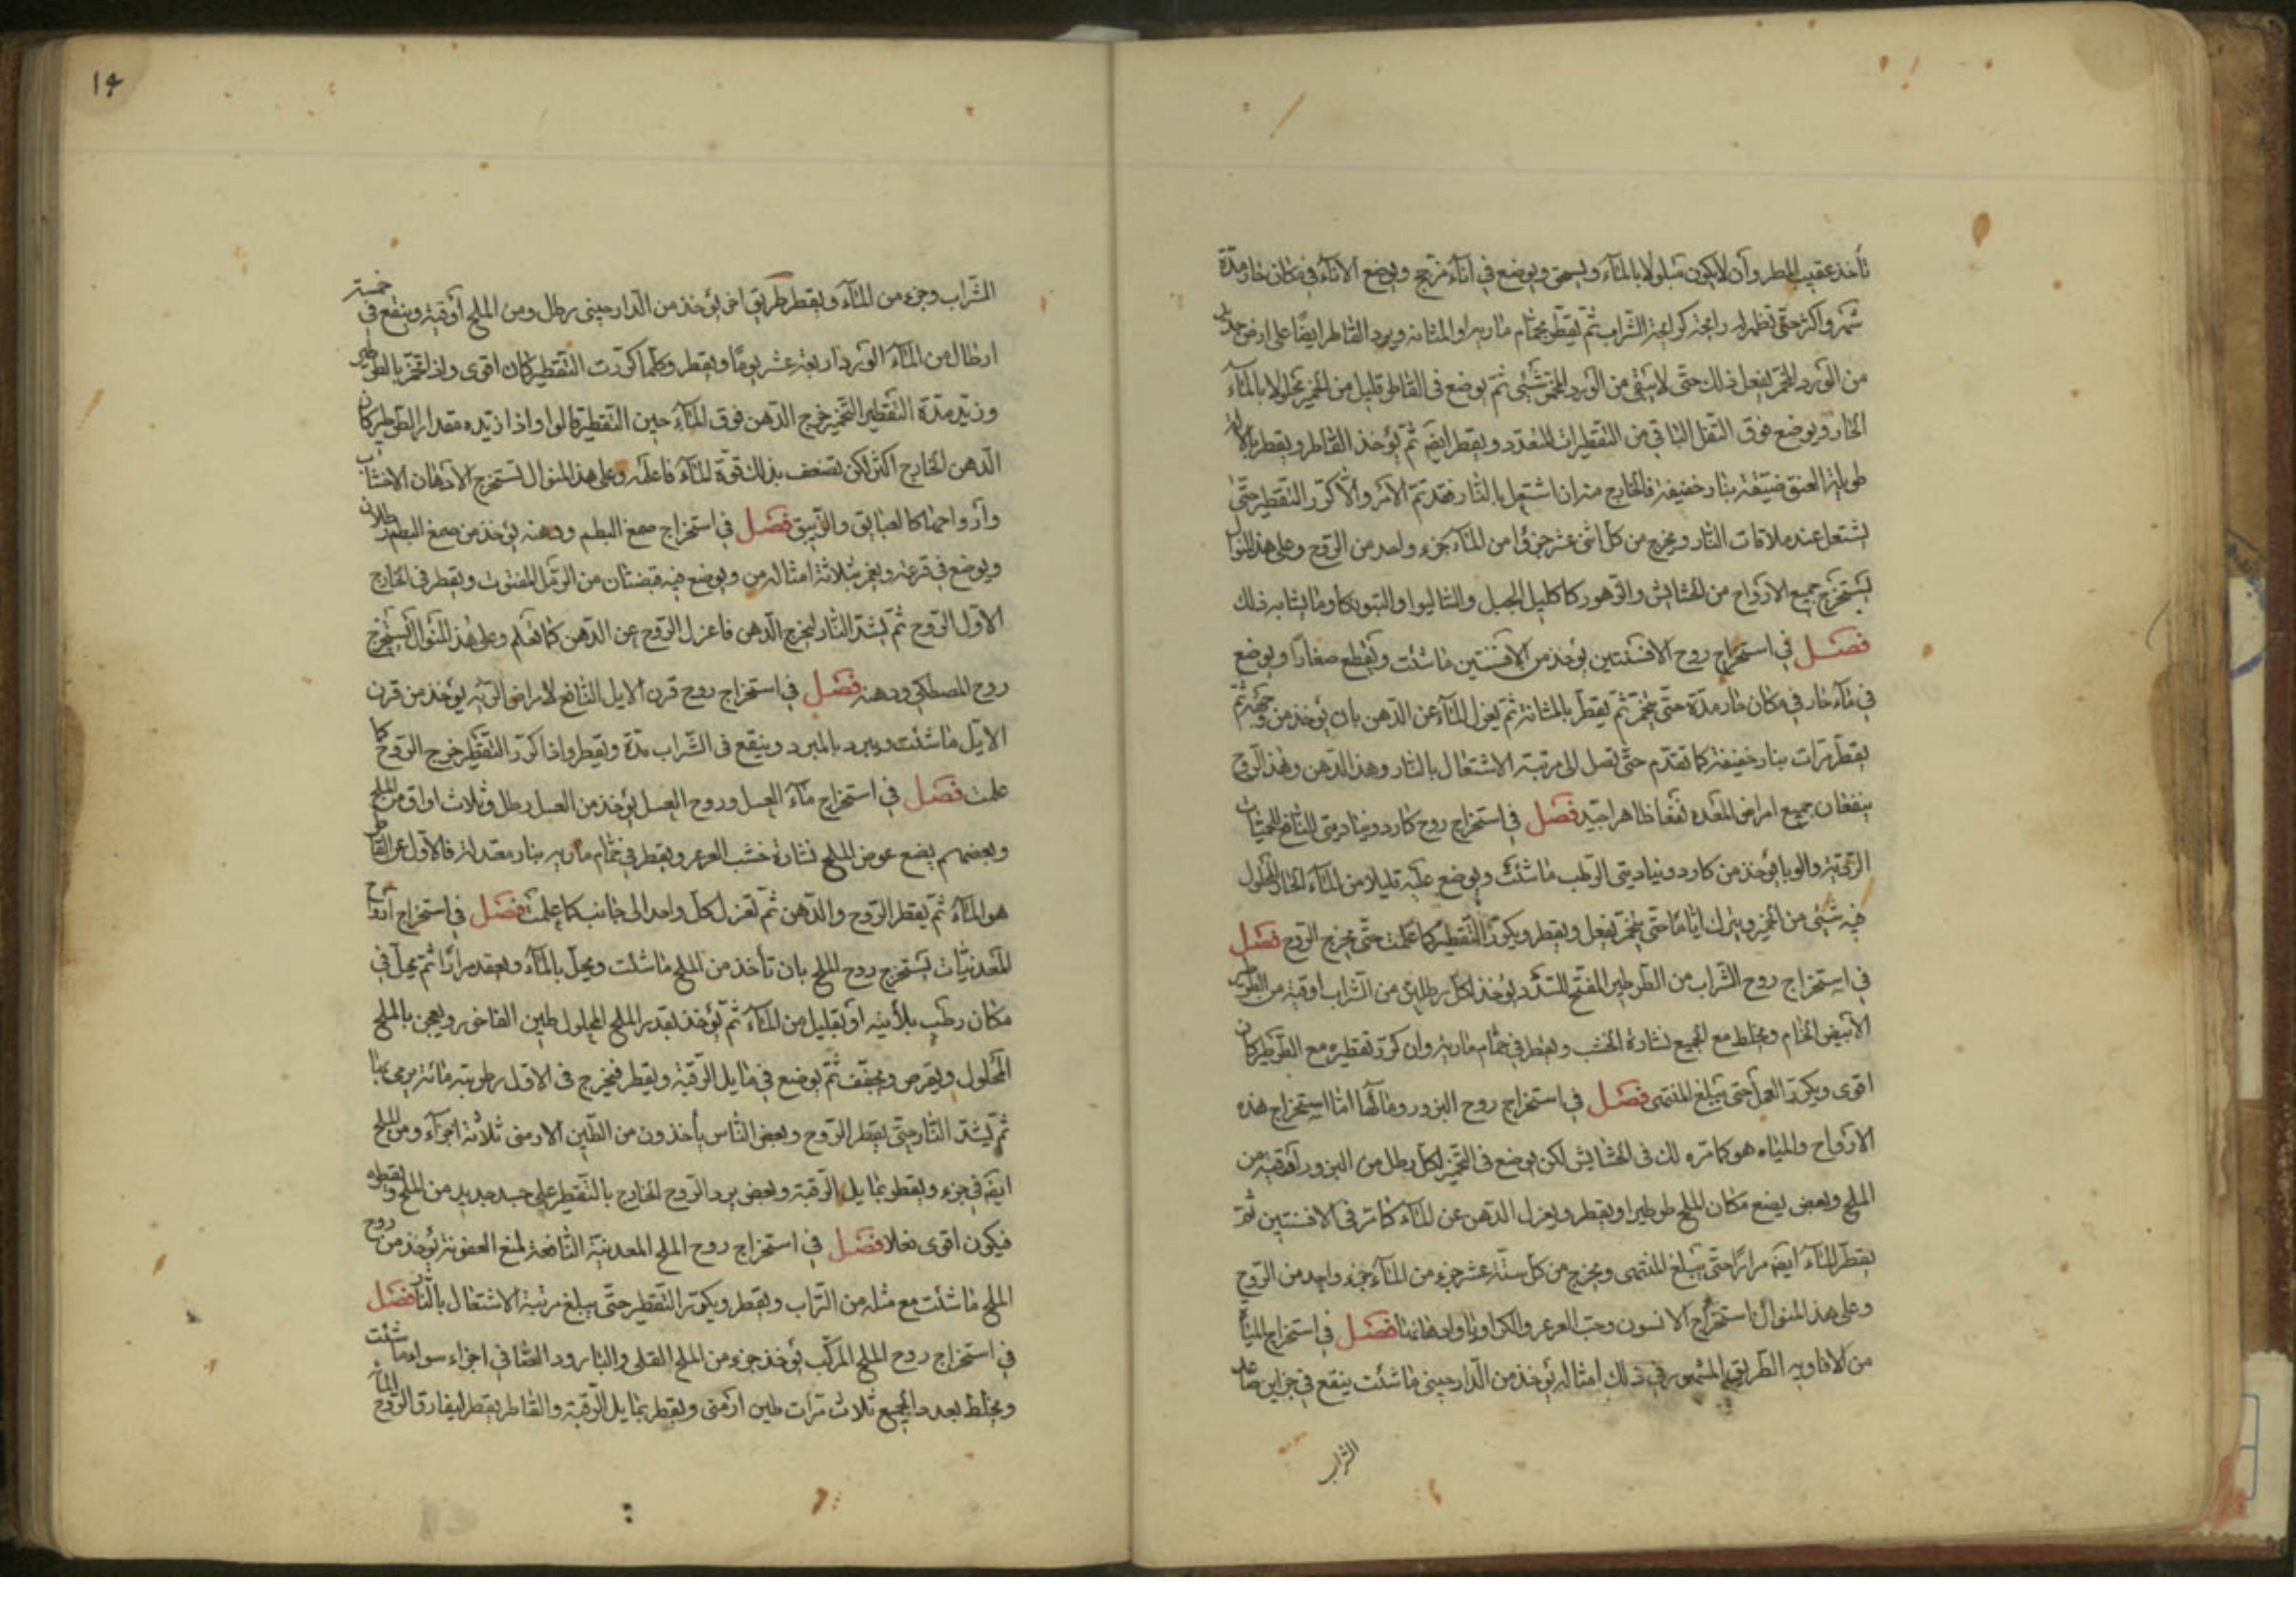 تأخذ عقيب المطر وآن لا يكون مبلولا بالمآء ويسحق ويوضع في انآء مزجج ويوضع الانآء في مكان حار مدّة
شهر واكثر حتّى تظهر له رايحة كرايحة الشّراب ثمّ يقطّر بحمّام ماريه او المثانه ويرد القاطر ايضًا على ارض جديد
من الورد المخمّر يفعل ذلك حتّى لا يبقى من الورد المخمّر شئى ثمّ يوضع في القاطر قليل من الخمير محلولا بالمآء
الحار ويوضع فوق الثفل الباقي من التقطيرات المتعدّد ويقطر ايضا ثمّ يؤخذ القاطر ويقطر بالآلة
طويلة العنق ضيّقة بنار خفيفة فالخارج منه ان اشتعل بالنّار فقد تمّ الامر والّا كرّر التقطير حتّى
يشتعل عند ملاقات النّار ويخرج من كل اثنى عشر جزؤا من المآء جزء واحد من الرّوح وعلى هذا المنوال
يستخرج جميع الارواح من الحشايش والزهور كاكليل الجبل والشاليوا والبتونيكا وما يشابه ذلك
فصل في استخراج روح الافسنتين يؤخذ من الافسنتين ما شئت ويقطع صغارا ويوضع
في مآء حار في مكان حار مدّة حتّى يتخمّر ثمّ يقطّر بالمثانة ثمّ يعزل المآء عن الدّهن بان يؤخذ من وجهه ثمّ
يقطّر مرّات بنار خفيفة كما تقدّم حتّى تصل الى مرتبة الاشتعال بالنار وهذا الدّهن وهذا الرّوح
ينفعان جميع امراض المعده نفعا ظاهرا جيّد فصل في استخراج روح كاردو نيا ديتى النافع للحميّات
الرّديّة والوبا يؤخذ من كاردو نيا ديتى الرّطب ما شئت ويوضع عليه قليلا من المآء الحار المحلول
فيه شئى من الخمير ويترك ايّاما حتّى يتخمّر يفعل ويقطر ويكرّر التقطير كما علمت حتّى يخرج الرّوح فصل
في استخراج روح الشّراب من الطّرطير المفتّح للسّدد يؤخذ لكل رطلين من الشّراب اوقية من الطّرطير
الابيض الخام ويخلط مع الجميع نشارة الخشب ويقطر في حمّام ماريه وان كرّر تقطيره مع الطّرطير كان
اقوى ويكرّر العمل حتّى يبلغ المنتهى فصل في استخراج روح البزور ومائها امّا استخراج هذه
الارواح والمياه هو كما مرّه لك في الحشايش لكن يوضع في التخمّر لكل رطل من البزور اوقية من
الملح وبعض يضع مكان الملح طرطيرا ويقطر ويعزل الدّهن عن المآء كما مرّ في الافسنتين ثمّ
يقطّر المآء ايضا مرارًا حتّى يبلغ المنتهى ويخرج من كل ستّة عشر جزء من المآء جزء واحد من الرّوح
وعلى هذا المنوال استخراج الانسون وحبّ العرعر والكراويا وادهانها فصل في استخراج المياه
من الافاويه الطّريق المشهور في ذلك امثاله يؤخذ من الدّارجينى ما شئت ينقع في جزاين
الشراب
١٤
الشّراب وجزء من المآء ويقطر طريق اخر يؤخذ من الدّارجينى رطل ومن الملح اوقية وينقع في خمسة
ارطال من المآء الورد اربعة عشر يومًا ويقطر وكلّما كرّرت التقطير كان اقوى واذا تخمّر بالطّرطير
وزيد مدّة التقطير التخمير خرج الدّهن فوق المآء حين التقطير قالوا واذا زيده مقدار الطّرطير كان
الدّهن الخارج اكثر لكن تضعف بذلك قوّة المآء فاعلمه وعلى هذا المنوال تستخرج الادهان الاخشاب
وارواحها كالصبايق والزيبق فصل في استخراج صمغ البطم ودهنه يؤخذ من صمغ البطم رطلان
ويوضع في قرعة ويغمر بثلاثة امثاله من ويوضع فيه قبضتان من الرّمل المفتوت ويقطر في الخارج
الاوّل الرّوح ثمّ يشدّ النّار ليخرج الدّهن فاعزل الرّوح عن الدّهن كما تعلم وعلى هذا المنوال تستخرج
روح المصطكى ودهنه فصل في استخراج روح قرن الايل النّافع لامراض الرّيه يؤخذ من قرن
الايّل ما شئت ويبرد بالمبرد وينقع في الشّراب مدّة ويقطر واذا كرّر التقطير خرج الرّوح كما
علمت فصل في استخراج مآء العسل وروح العسل يؤخذ من العسل رطل وثلاث اواق من الملح
وبعضهم يضع عوض الملح نشارة خشب العرعر ويقطر في حمّام ماريه بنار معتدلة فالاول القاطر
هو المآء ثمّ يقطر الرّوح والدّهن ثمّ تعزل كل واحد الى جانب كما علمت فصل في استخراج ارواح
المعدنيّات يستخرج روح الملح بان تأخذ من الملح ما شئت ويحل بالمآء ويعقد مرارا ثمّ يحل في
مكان رطب بلأمنيه او بقليل من المآء ثمّ يؤخذ بقدر الملح المحلول طين الفاخورى ويعجن بالملح
المحلول ويقرص ويجفّف ثمّ يوضع في مايل الرّقبة ويقطر فيخرج في الاول رطوبة مائية يرمى بها
ثمّ يشدّ النّار حتّى يقطر الرّوح وبعض النّاس يأخذون من الطّين الارمنى ثلاثة اجزآء ومن الملح
ايضا في جزء ويقطر بمايل الرّقبة وبعض يرد الرّوح الخارج بالتقطير على جسد جديد من الملح ويقطره
فيكون اقوى فعلا فصل في استخراج روح الملح المعدنيّة النافعة لمنع العفونة يؤخذ من روح
الملح ما شئت مع مثله من التّراب ويقطر ويكرّر التقطير حتّى يبلغ مرتبة الاشتعال بالنّار فصل
في استخراج روح الملح المركّب يؤخذ جزء من الملح القلى والبارود الصّافي اجزاء سواء ما شئت
ويخلط بعده الجميع ثلاث مرّات طين ارمنى ويقطر بمايل الرّقبة والقاطر يقطر ليفارق الرّوح المآء